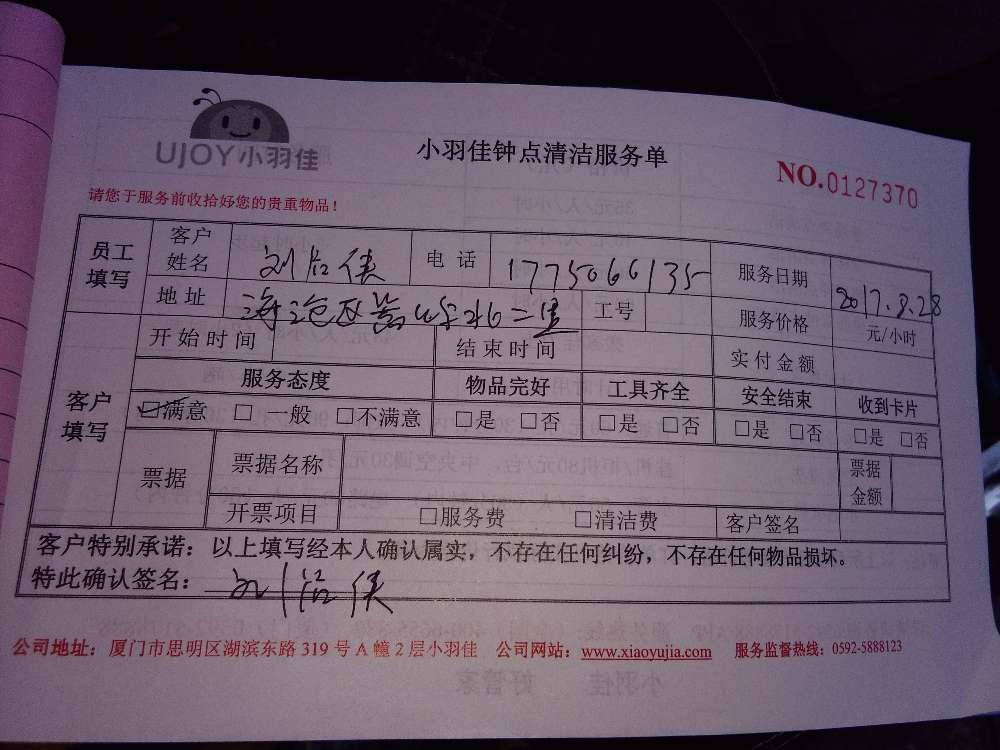 UJOY小羽佳
小羽佳钟点清洁服务单
NO.0127370
请您于服务前收拾好您的贵重物品！
员工填写 客户姓名 刘 侠 电话 1775066135 服务日期 2017.8.28
地址 海沧区 二里 工号 服务价格 元/小时
开始时间 结束时间 实付金额
客户填写 服务态度 物品完好 工具齐全 安全结束 收到卡片
☑满意 □一般 □不满意 □是 □否 □是 □否 □是 □否 □是 □否
票据 票据名称 票据金额
开票项目 □服务费 □清洁费 客户签名
客户特别承诺：以上填写经本人确认属实，不存在任何纠纷，不存在任何物品损坏。
特此确认签名：刘 侠
公司地址：厦门市思明区湖滨东路 319 号 A 幢 2 层小羽佳 公司网站：www.xiaoyujia.com 服务监督热线：0592-5888123